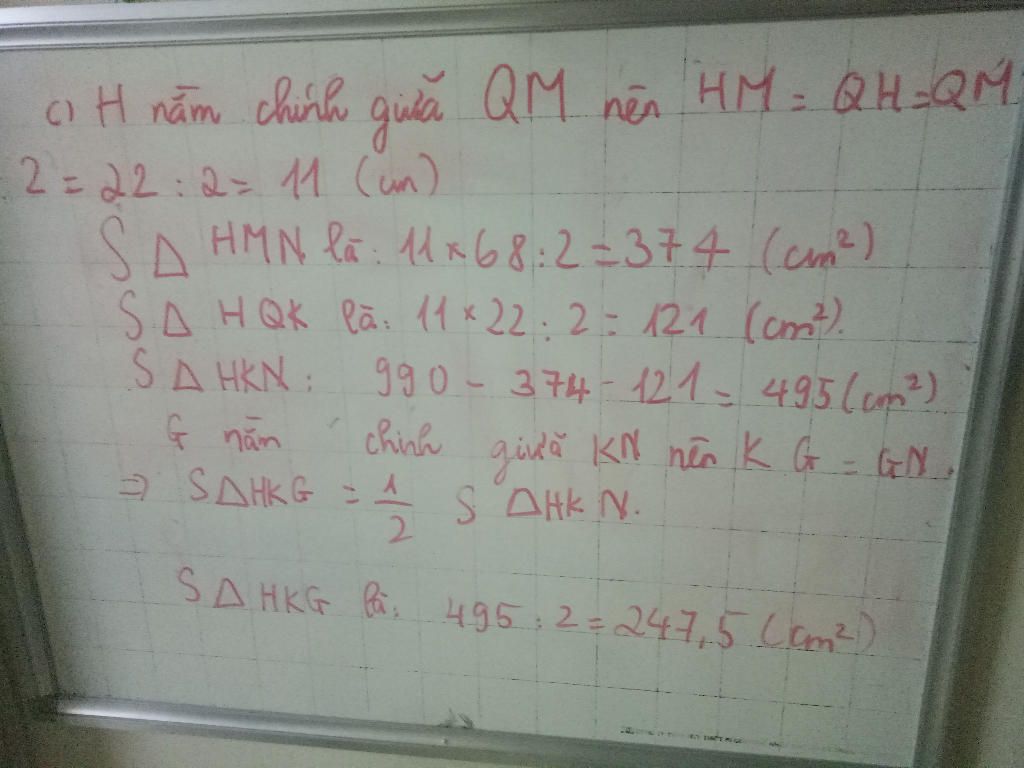 c) H nằm chính giữa QM nên HM = QH = QM
2 = 22 : 2 = 11 (cm)
S Δ HMN là: 11 × 68 : 2 = 374 (cm²)
S Δ HQK là: 11 × 22 : 2 = 121 (cm²).
S Δ HKN: 990 - 374 - 121 = 495 (cm²)
G nằm chính giữa KN nên KG = GN.
⇒ S Δ HKG = 1/2 S Δ HKN.
S Δ HKG là: 495 : 2 = 247,5 (cm²)